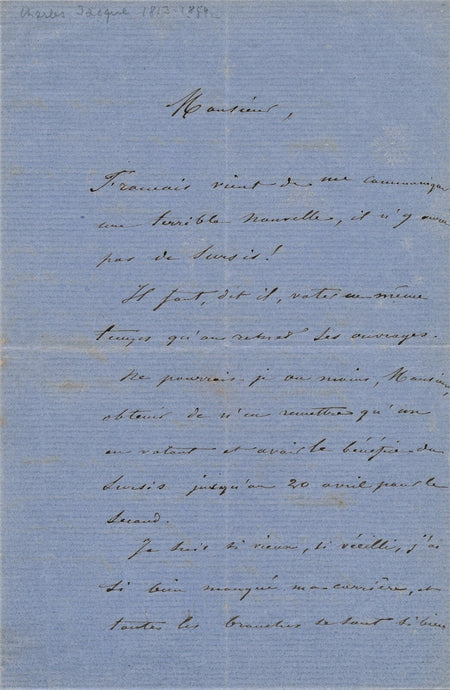 Charles 1813-1894
Monsieur,
Francais vient de me communiquer
une terrible nouvelle, il n'y aura
pas de Sursis!
Il faut, dit il, voter en même
temps qu'on rend ses ouvrages.
Ne pourrais-je au moins, Monsieur,
obtenir de n'en remettre qu'un
en votant et avoir le bénéfice du
Sursis jusqu'au 20 avril pour le
second.
Je suis si vieux, si vieilli, j'ai
si bien manqué ma carrière, et
toutes les branches se sont si bien